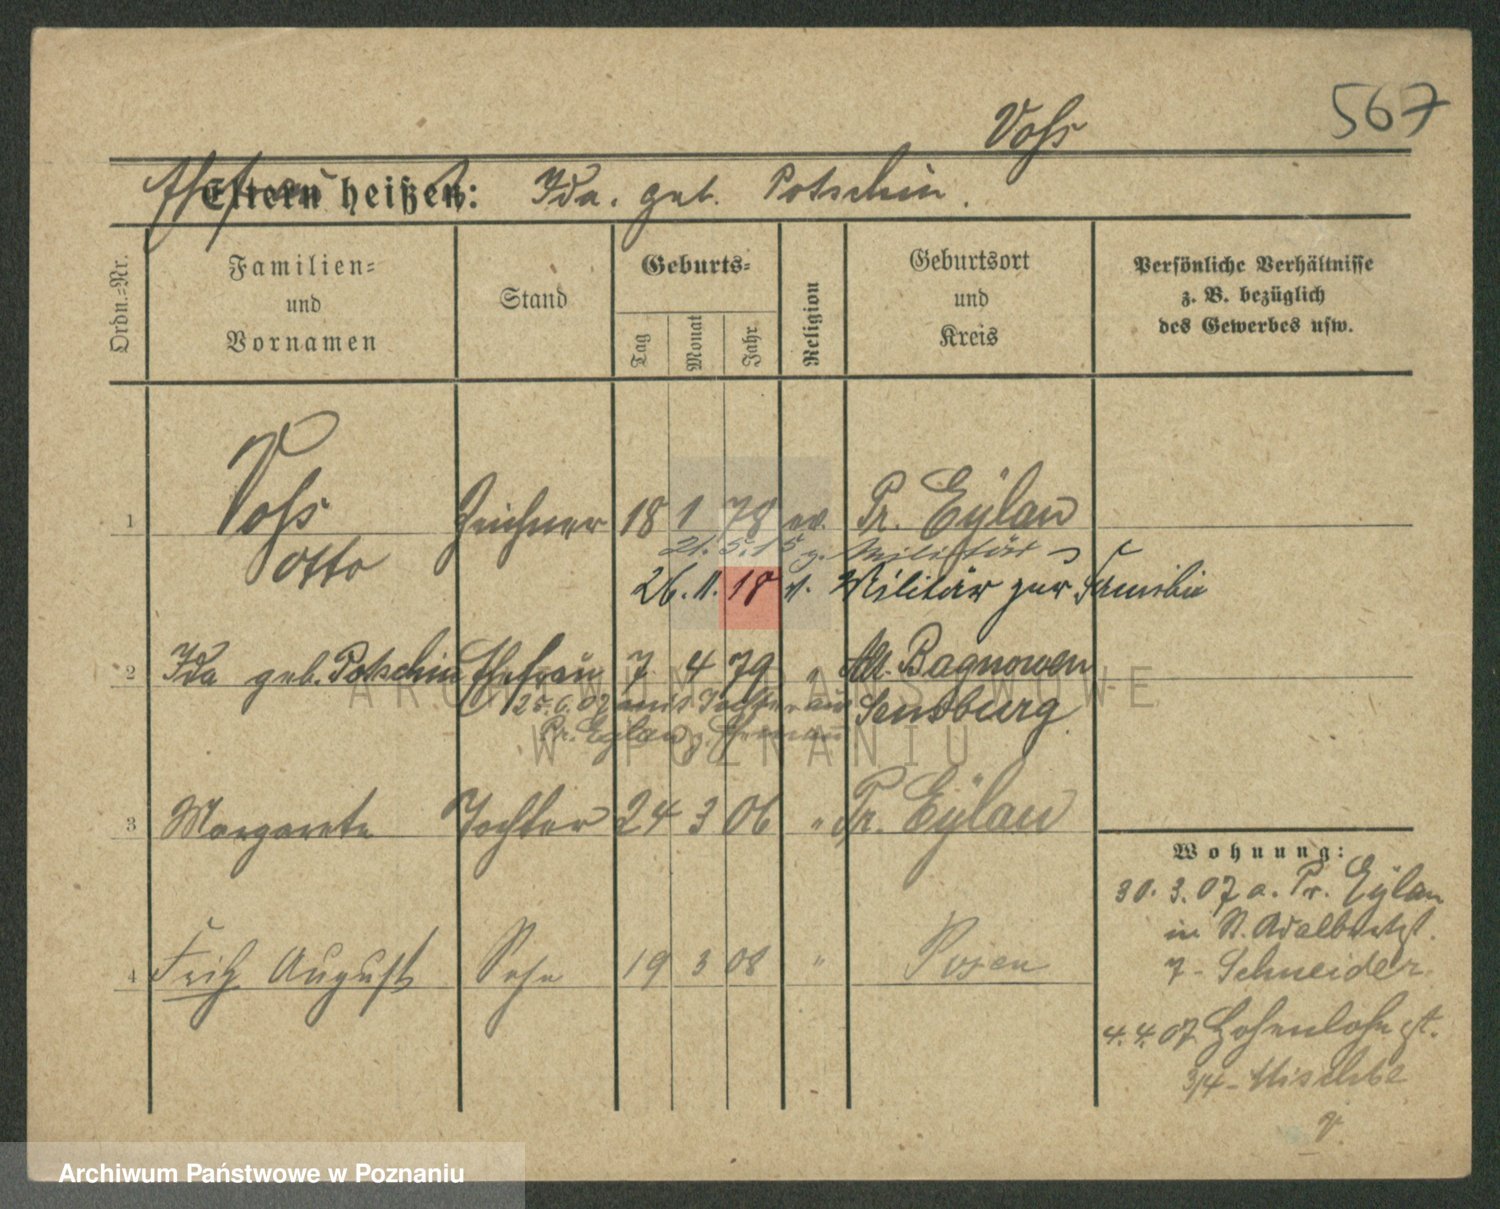 567
Voſs
Ehefrau Eltern heißen: Ida. geb. Potschin.
Ordn.=Nr.
Familien=
und
Vornamen
Stand
Geburts=
Tag
Monat
Jahr
Religion
Geburtsort
und
Kreis
Persönliche Verhältnisse
z. B. bezüglich
des Gewerbes usw.
1 Voſs Zeichner 18 1 78 ev. Pr. Eylau
Otto
21.5.15 z. Militär
26.11.18 v. Militär zur Familie
2 Ida geb. Potschin Ehefrau 7 4 79 " Alt-Bagnowen
25.6.07 mit Tochter aus Sensburg
Pr. Eylau z. Ehemann
3 Margarete Tochter 24 3 06 " Pr. Eylau
4 Fritz August Sohn 19 3 08 " Posen
Wohnung:
30.3.07 a. Pr. Eylau
in St. Adalbertst.
7 - Schneider.
4.4.07 Hohenlohest.
3/4 - Nischke
v.
ARCHIWUM PAŃSTWOWE
W POZNANIU
Archiwum Państwowe w Poznaniu